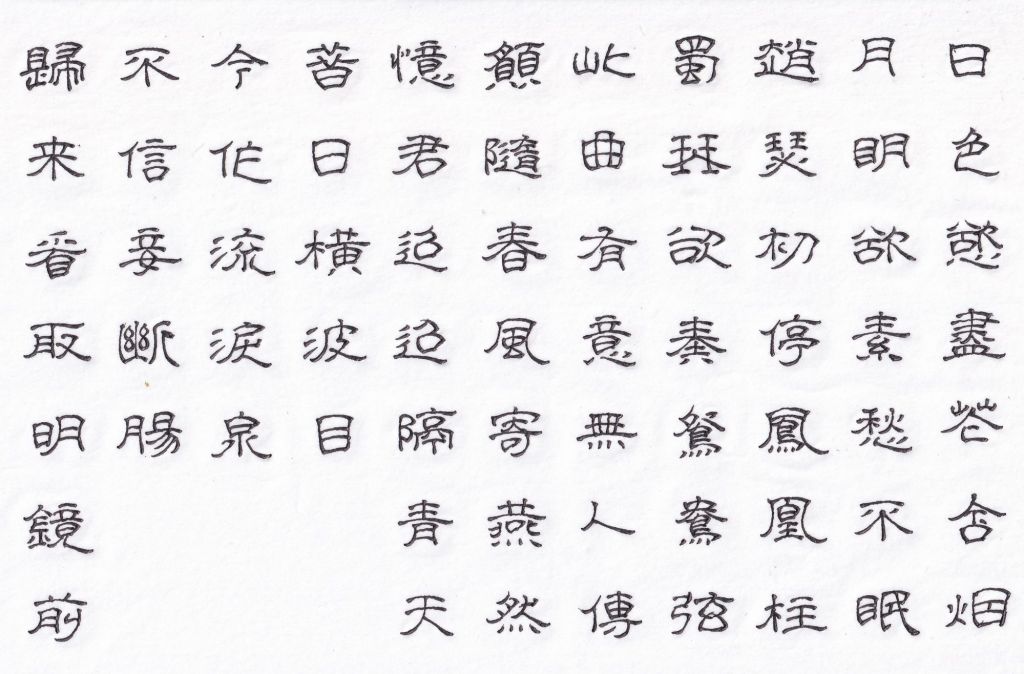 日色慾盡花含烟
月明欲素愁不眠
趙瑟初停鳳凰柱
蜀琴欲奏鴛鴦弦
此曲有意無人傳
願隨春風寄燕然
憶君迢迢隔青天
昔日橫波目
今作流淚泉
不信妾斷腸
歸来看取明鏡前